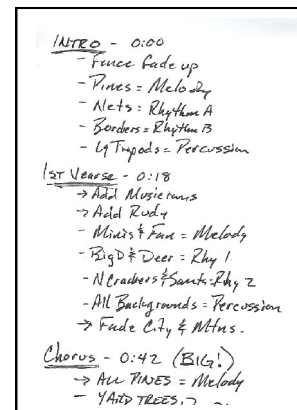 INTRO - 0:00
- Fence fade up
- Pines = Melody
- Nets = Rhythm A
- Borders = Rhythm B
- Lg Tripods = Percussion
1ST Vearse - 0:18
→ Add Musictmns
→ Add Rudy
- Minis & Fan = Melody
- Big D & Deer = Rhy 1
- NCrackers & Santa = Rhy 2
- All Backgrounds = Percussion
→ Fade City & Mtns.
Chorus - 0:42 (BIG!)
→ ALL PINES = Melody
- YARD TREES